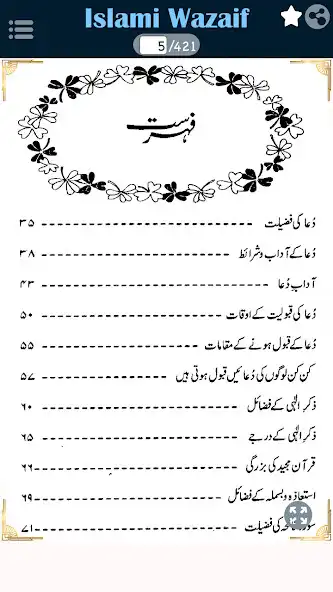 Islami Wazaif
5/421
فہرست
دُعا کی فضیلت ۳۵
دُعا کے آداب و شرائط ۳۸
آدابِ دُعا ۴۳
دُعا کی قبولیت کے اوقات ۵۰
دُعا کے قبول ہونے کے مقامات ۵۵
کن کن لوگوں کی دُعائیں قبول ہوتی ہیں ۵۷
ذکرِ الٰہی کے فضائل ۶۰
ذکرِ الٰہی کے درجے ۶۵
قرآن مجید کی بزرگی ۶۶
استعاذہ و بسملہ کے فضائل ۶۹
کی فضیلت ۷۱